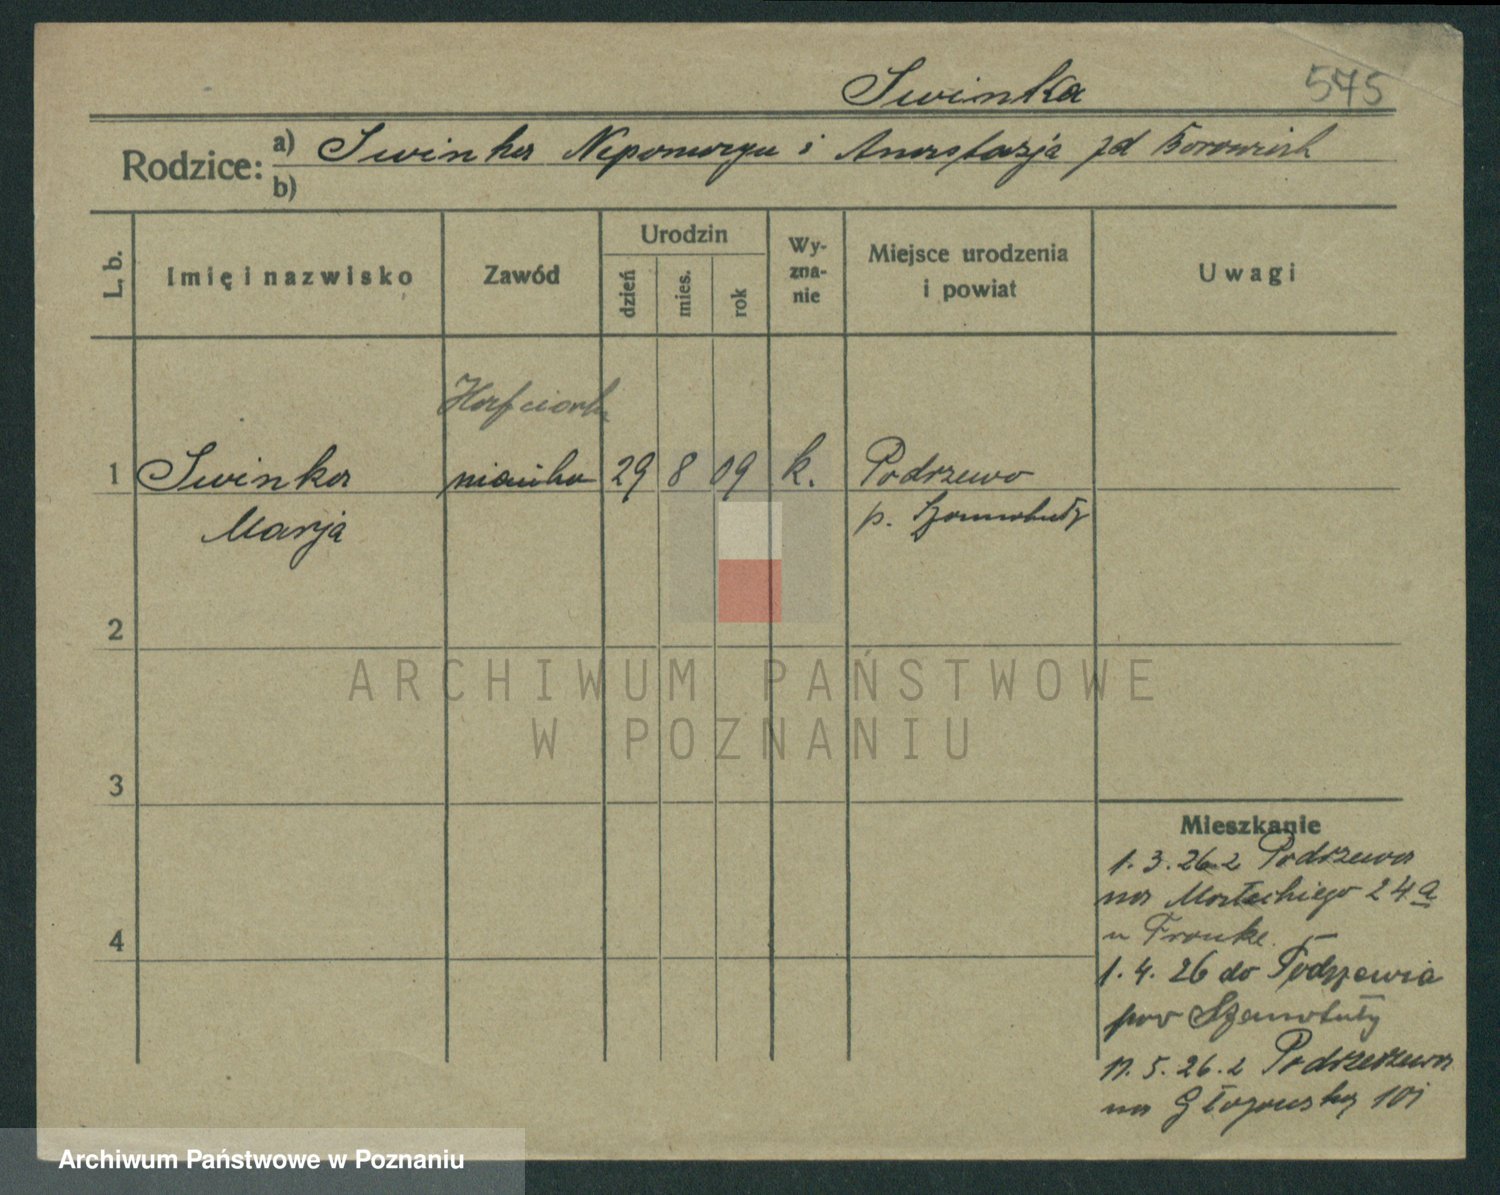 Swinka 575
Rodzice: a) Swinka Nepomucyn i Anastazja zd Borowiak
b)
L. b. Imię i nazwisko Zawód Urodzin dzień mies. rok Wyznanie Miejsce urodzenia i powiat Uwagi
Hafciarka
1 Swinka niańka 29 8 09 k. Podrzewo
Marja p. Szamotuły
2
ARCHIWUM PAŃSTWOWE
W POZNANIU
3
Mieszkanie
1. 3. 26 z Podrzewa
na Małeckiego 24a
u Franke.
4
1. 4. 26 do Podrzewia
pow Szamotuły
17. 5. 26. z Podrzewa
na Głogowską 101
Archiwum Państwowe w Poznaniu